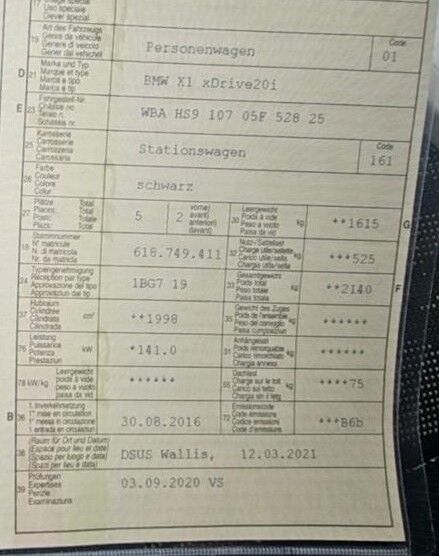 17
Uso speciale
Diever spezial
19
Art des Fahrzeugs
Genre de véhicule
Genere di veicolo
Gener dal vehichel
Personenwagen
Code
01
D 21
Marke und Typ
Marque et type
Marca e tipo
Marca e tip
BMW X1 xDrive20i
E 23
Fahrgestell-Nr.
Châssis no
Telaio n.
Schassis nr.
WBA HS9 107 05F 528 25
25
Karosserie
Carrosserie
Carrozzeria
Carossaria
Stationswagen
Code
161
26
Farbe
Couleur
Colore
Colur
schwarz
27
Plätze Total
Places: Total
Posti: Totale
Plazs: Total
5
vorne/
avant/
anteriori/
davant/
2
30
Leergewicht
Poids à vide
Peso a vuoto
Paisa da vid
kg
**1615
G
18
Stammnummer
N° matricule
N. di matricola
Nr. da matricla
618.749.411
32
Nutz-/Sattellast
Charge utile/sellette
Carico utile/sella
Chargia utila/sella
kg
***525
24
Typengenehmigung
Réception par type
Approvazione del tipo
Approvaziun dal tip
1BG7 19
33
Gesamtgewicht
Poids total
Peso totale
Paisa totala
kg
**2140
F
37
Hubraum
Cylindrée
Cilindrata
Cilindrada
cm³
**1998
35
Gewicht des Zuges
Poids de l'ensemble
Peso del convoglio
Paisa cumposiziun
kg
******
76
Leistung
Puissance
Potenza
Prestaziun
kW
*141.0
31
Anhängelast
Poids remorquable
Carico rimorchiato
Chargia annexa
kg
******
78 kW/kg
Leergewicht
poids à vide
peso a vuoto
paisa da vid
******
55
Dachlast
Charge sur le toit
Carico sul tetto
Chargia sin il tetg
kg
****75
B 36
1. Inverkehrsetzung
1re mise en circulation
1a messa in circolazione
1 entrada en circulaziun
30.08.2016
72
Emissionscode
Code émissions
Codice emissioni
Code d'emissiuns
***B6b
38
(Raum für Ort und Datum)
(Espace pour lieu et date)
(Spazio per luogo e data)
(Spazi per lieu e data)
DSUS Wallis, 12.03.2021
39
Prüfungen
Expertises
Perizie
Examinaziuns
03.09.2020 VS